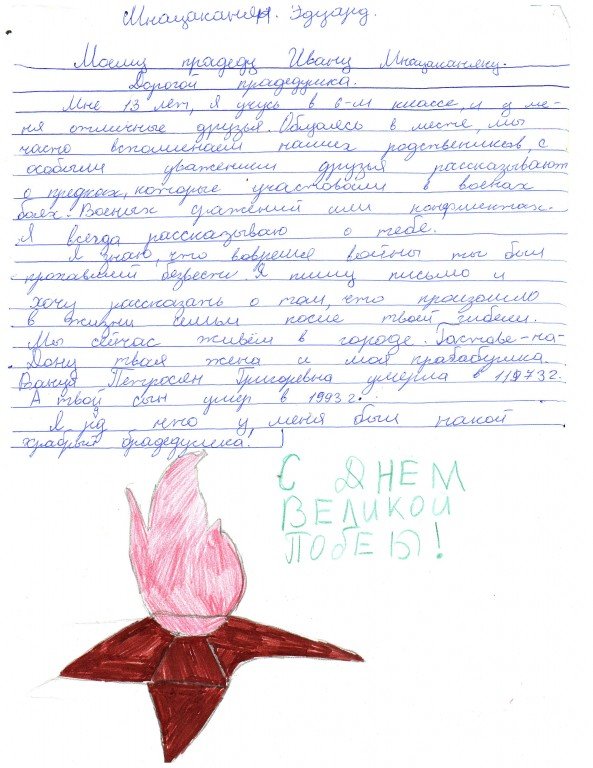 Мнацаканян. Эдуард.
Моему прадеду Ивану Мнацаканяну.
Дорогой прадедушка.
Мне 13 лет, я учусь в 6-м классе, и у ме-
ня отличные друзья. Общаясь в месте, мы
часто вспоминаем наших родственников, с
особым уважением друзья рассказывают
о предках, которые участвовали в военах
боях. Военых сражений или конфликтах.
Я всегда рассказываю о тебе.
Я знаю, что вовремя войны ты был
пропавший безвести. Я пишу письмо и
хочу рассказать о том, что произошло
в жизни семьи после твоей гибели.
Мы сейчас живём в городе. Ростове-на-
Дону твоя жена и моя прабабушка.
Петросян Григоревна умерла в
А твой сын умер в 1993 г.
Я рд что у, меня был такой
храбрый прадедушка!
С ДНЕМ
ВЕЛИКОЙ
ПОБЕДЫ!